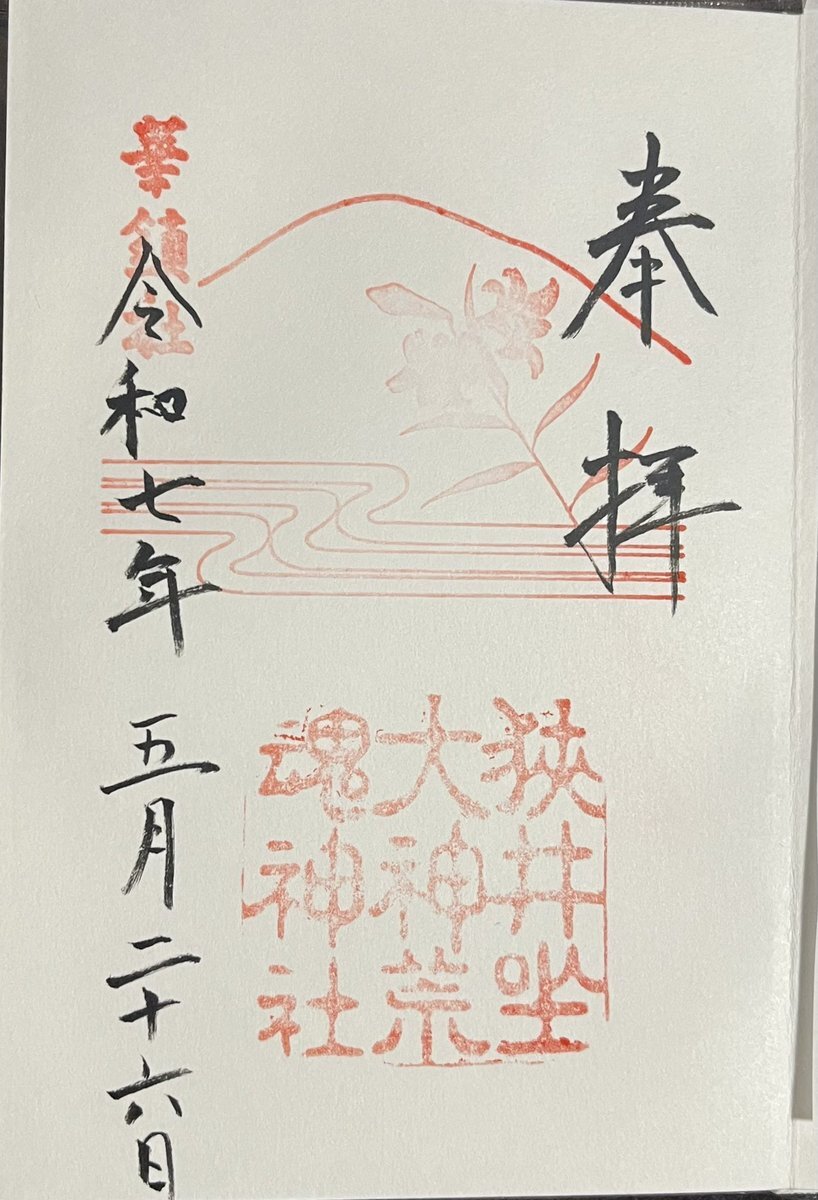 奉拝
狭井坐
大神荒
魂神社
華鎮社
令和七年五月二十六日